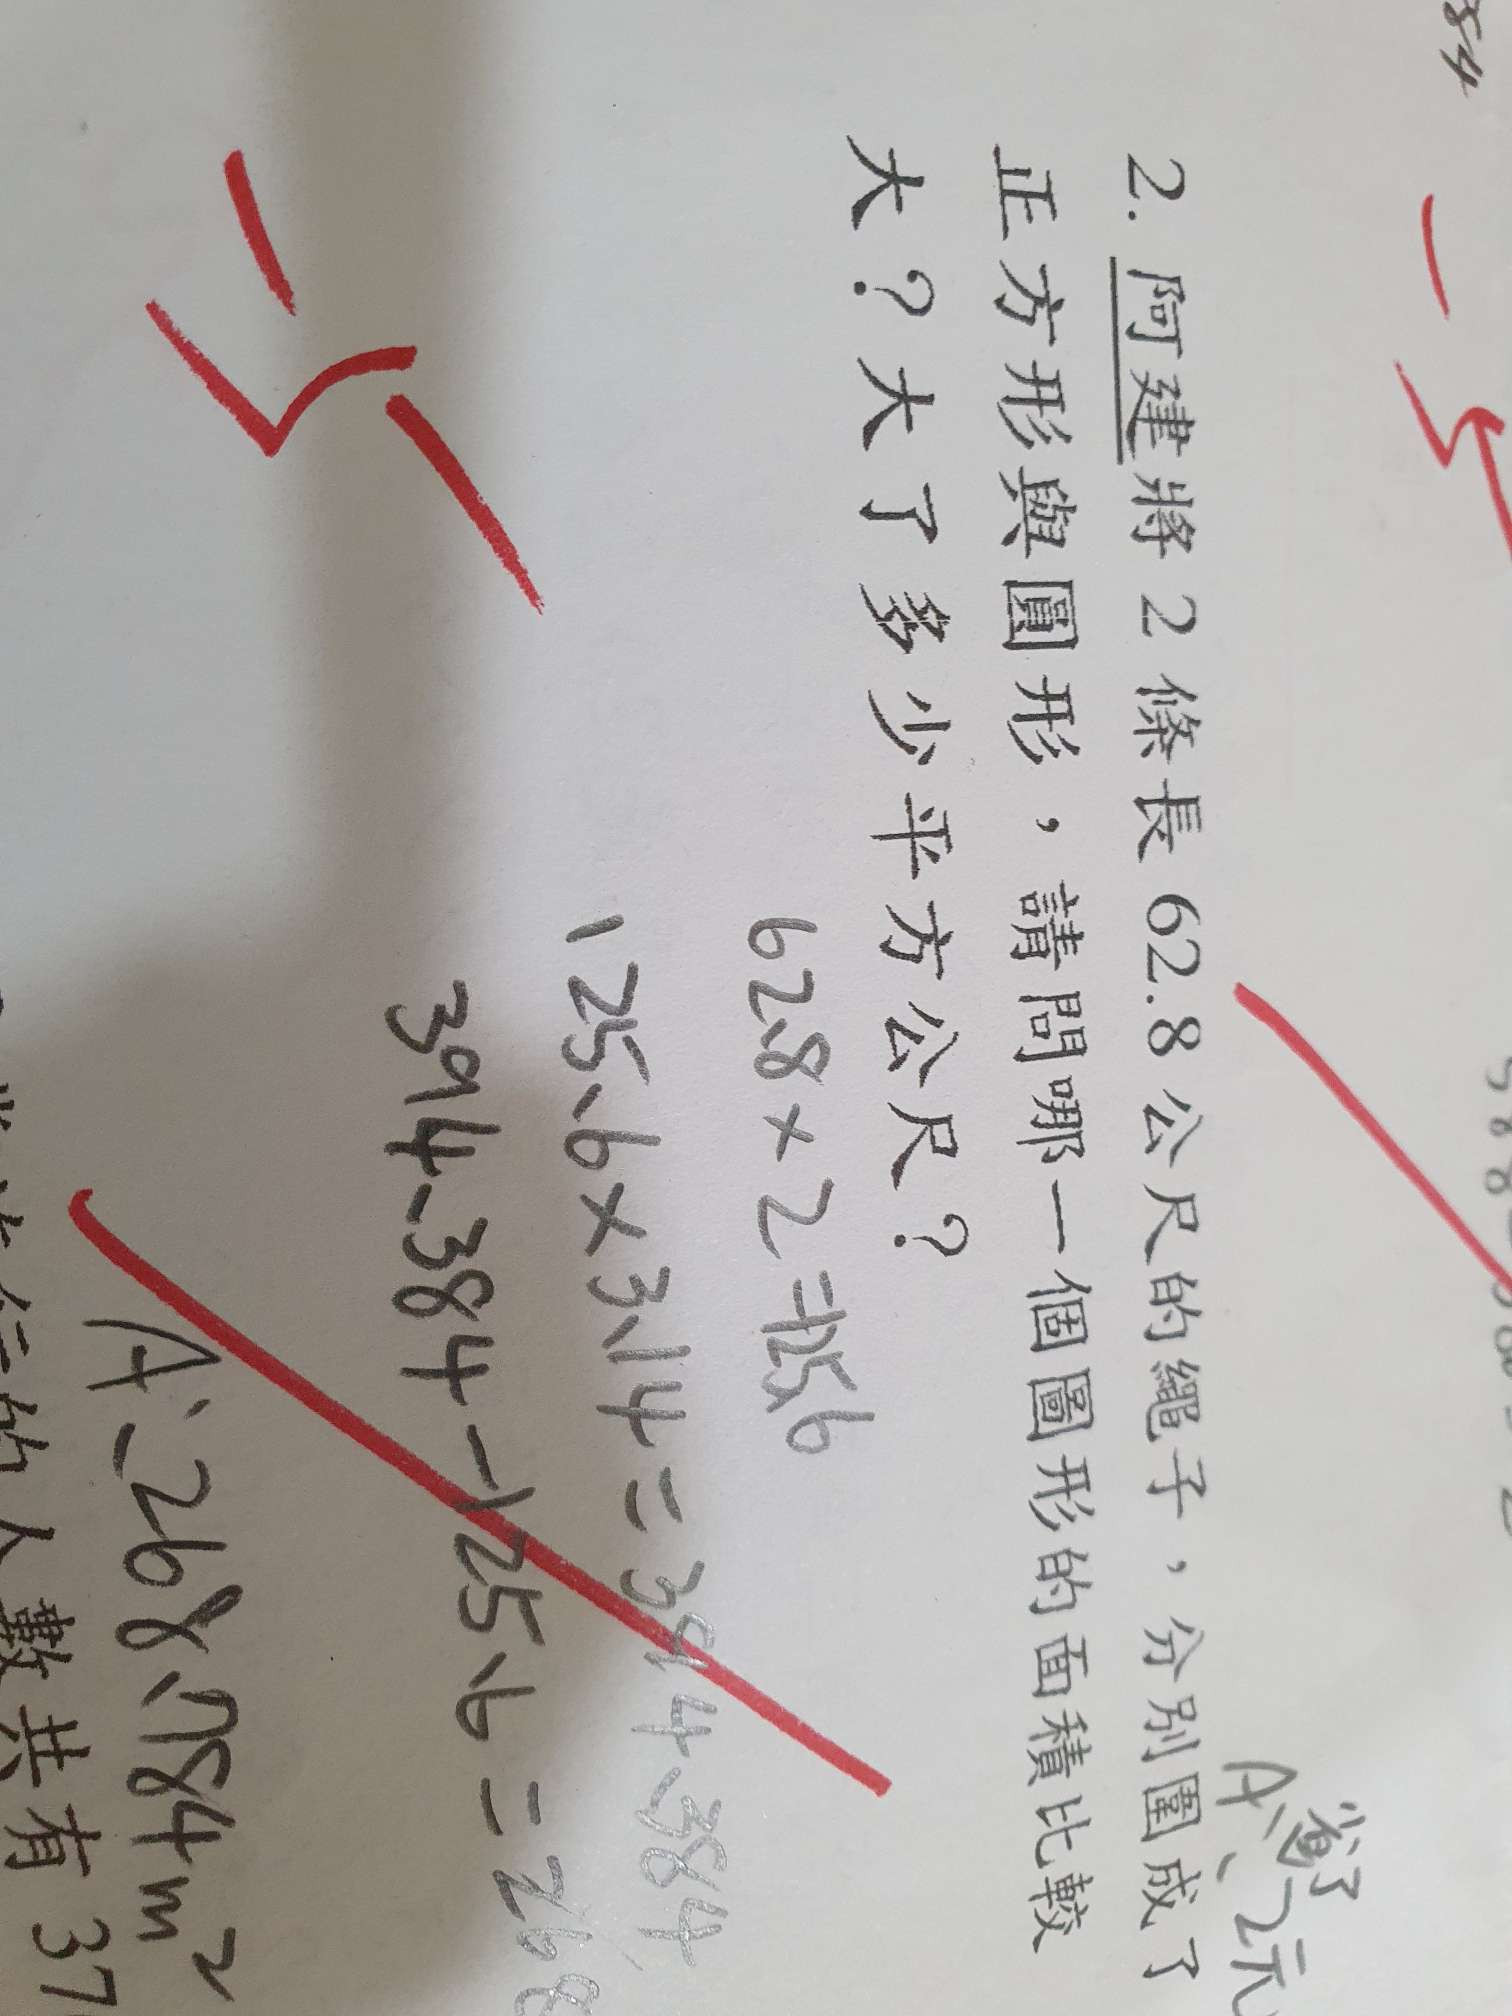 54
省了
A:2元
2. 阿建將 2 條長 62.8 公尺的繩子，分別圍成了
正方形與圓形，請問哪一個圖形的面積比較
大？大了多少平方公尺？
62.8×2=125.6
125.6×3.14=394.384
394.384-125.6=268
A:268.784m²
的人數共有 37
-5
-5